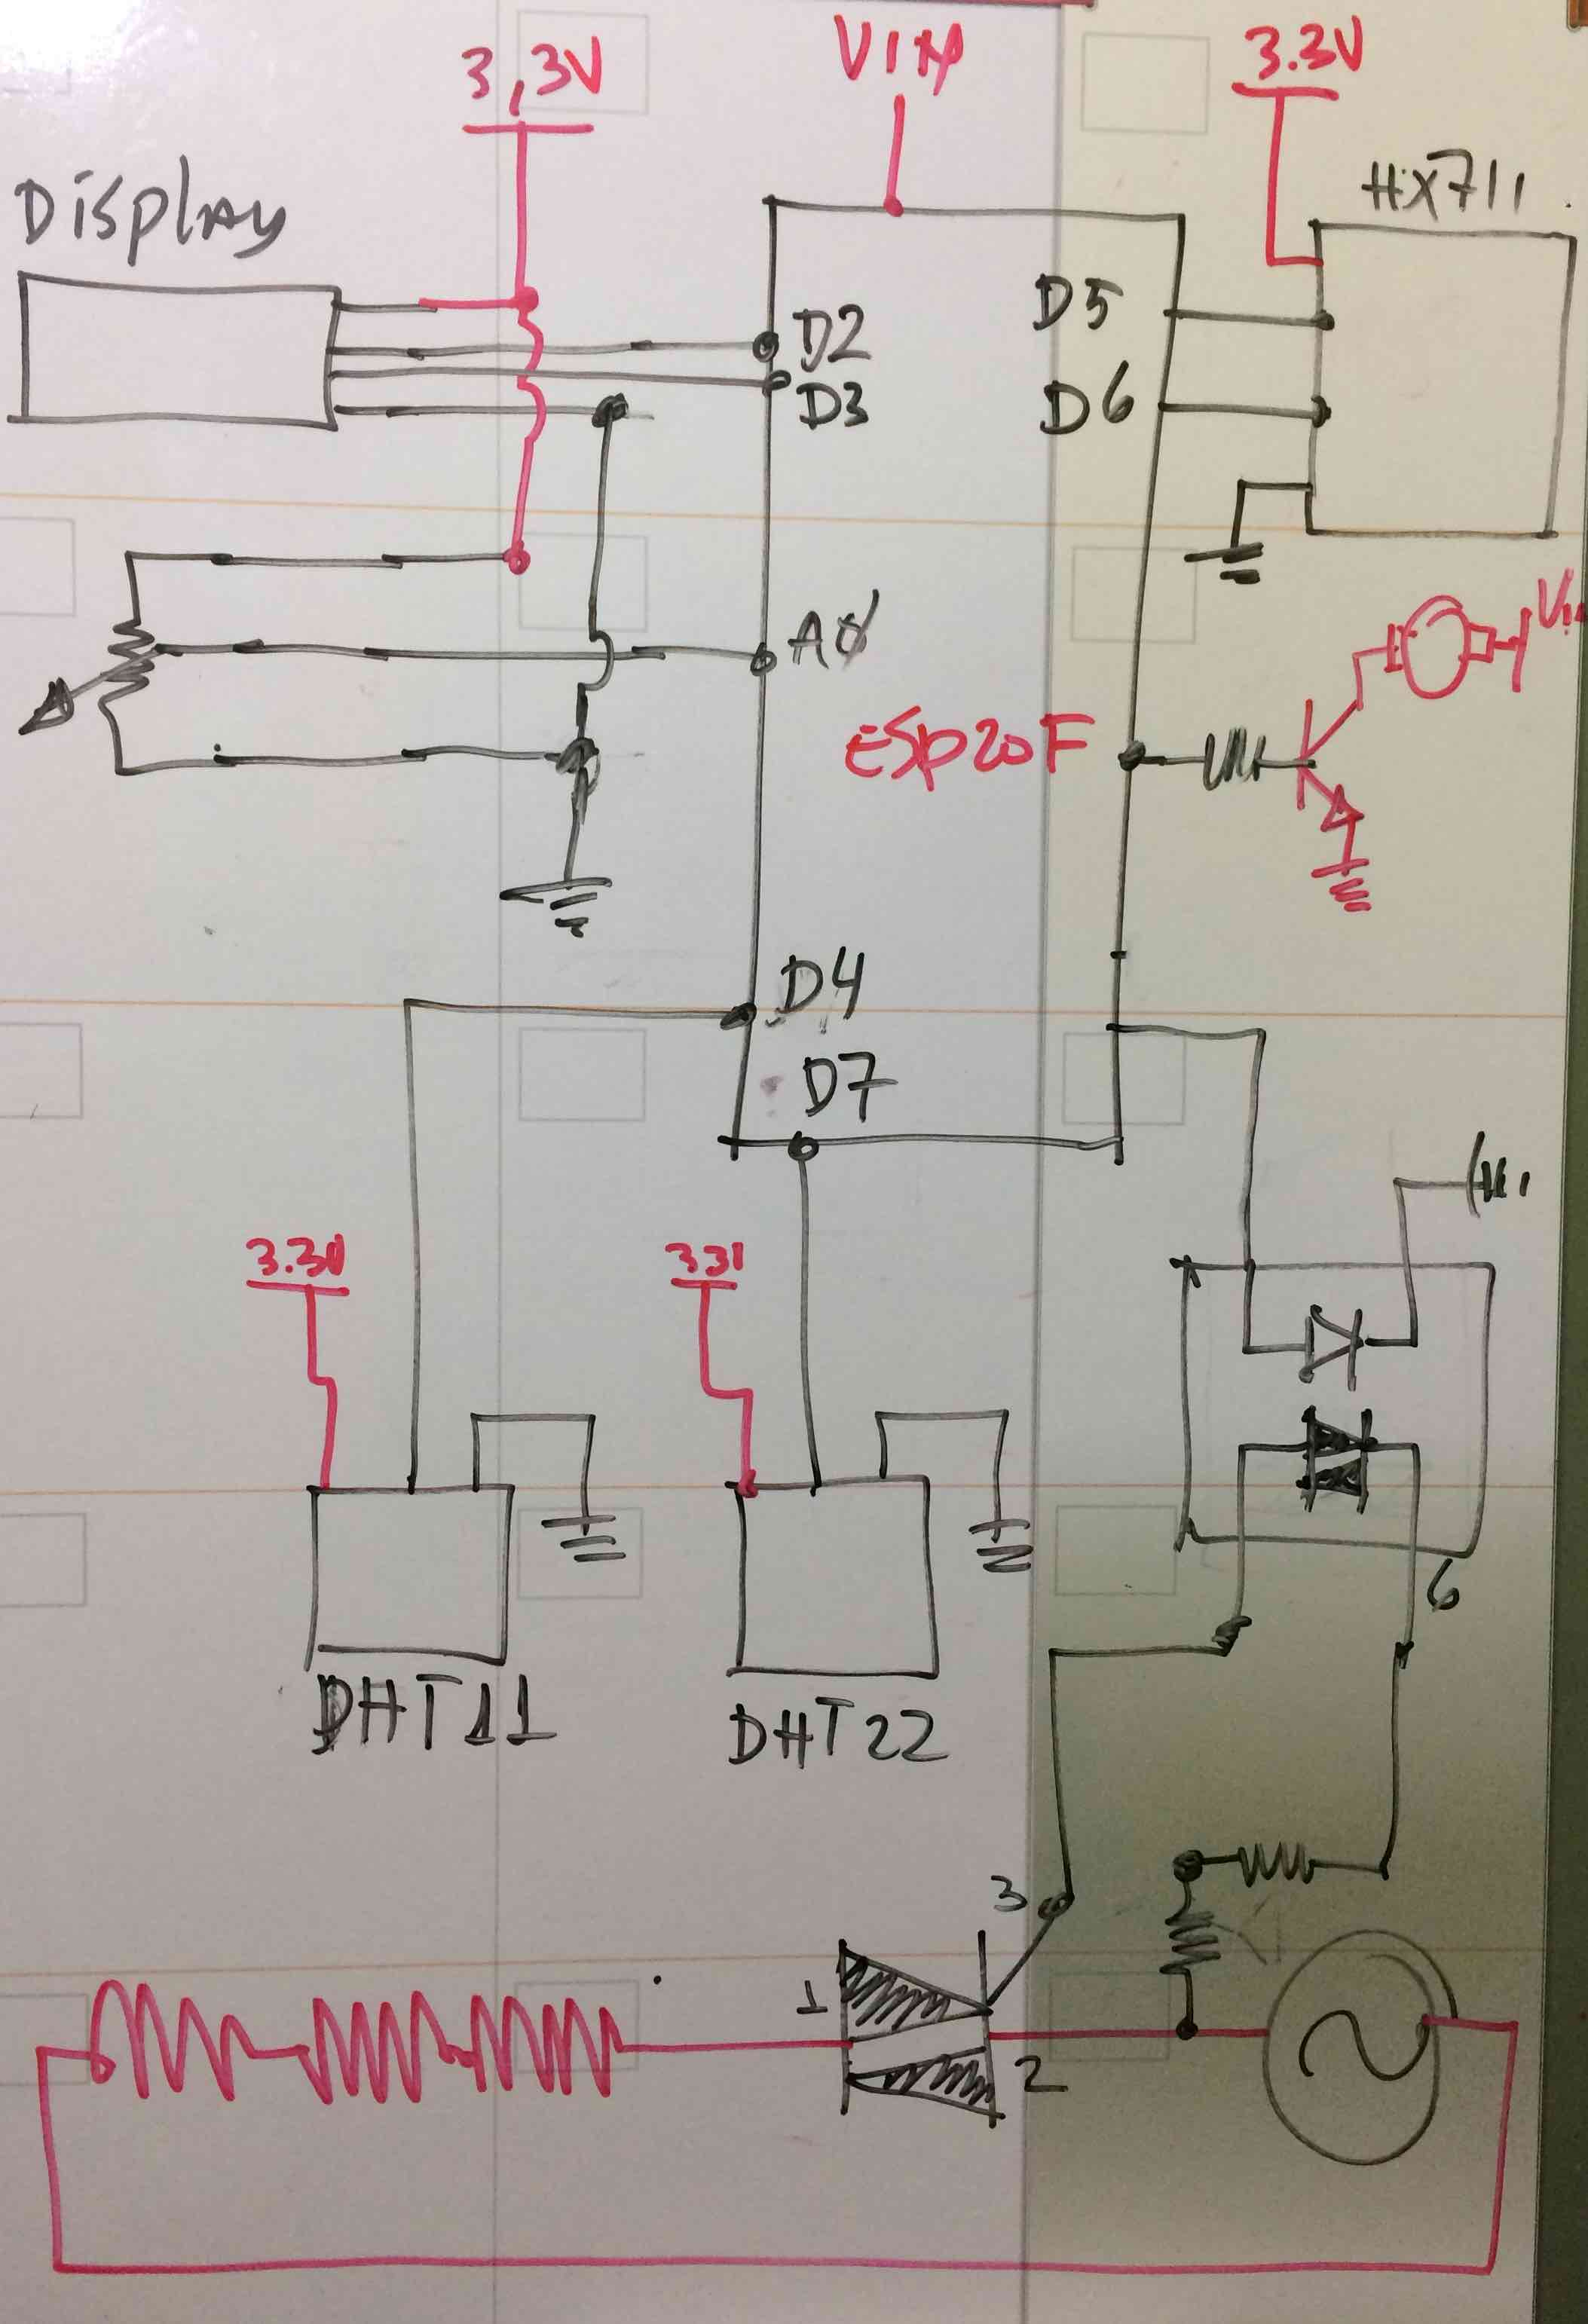 3,3V
VIN
3.3V
Display
HX711
D2
D3
D5
D6
AØ
ESP20F
D4
D7
3.3V
33V
6
DHT11
DHT22
3
1
2